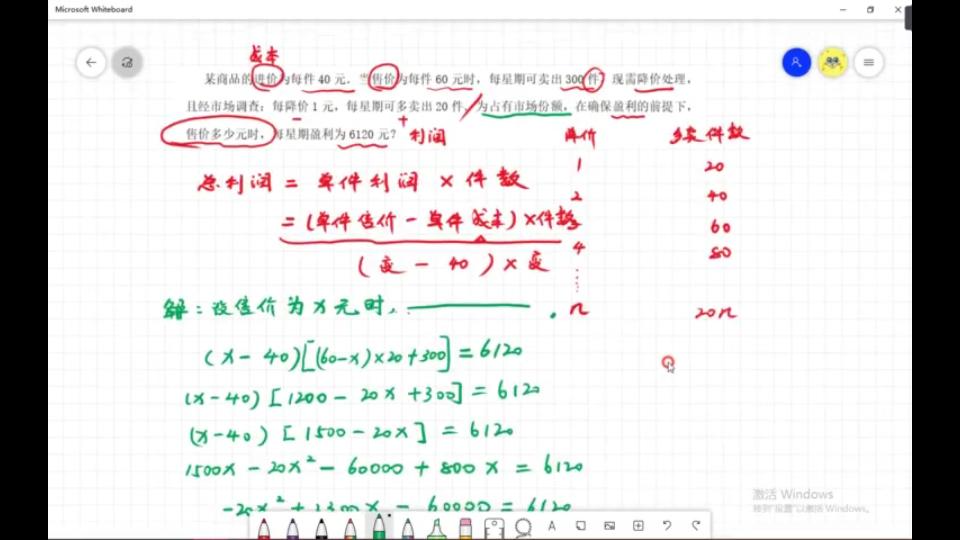 Microsoft Whiteboard
成本
某商品的进价为每件 40 元，当售价为每件 60 元时，每星期可卖出 300 件，现需降价处理，
且经市场调查：每降价 1 元，每星期可多卖出 20 件，为占有市场份额，在确保盈利的前提下，
售价多少元时，每星期盈利为 6120 元？
- + 利润 单价 多卖件数
1 20
总利润 = 单件利润 × 件数
2 40
= (单件售价 - 单件成本) × 件数
3 60
4 80
(变 - 40) × 变
⋮
解：设售价为 x 元时， 。
n 20n
(x-40)[(60-x)×20+300]=6120
(x-40)[1200-20x+300]=6120
(x-40)[1500-20x]=6120
1500x-20x²-60000+800x=6120
-20x²+2300x-60000=6120
激活 Windows
转到"设置"以激活 Windows。